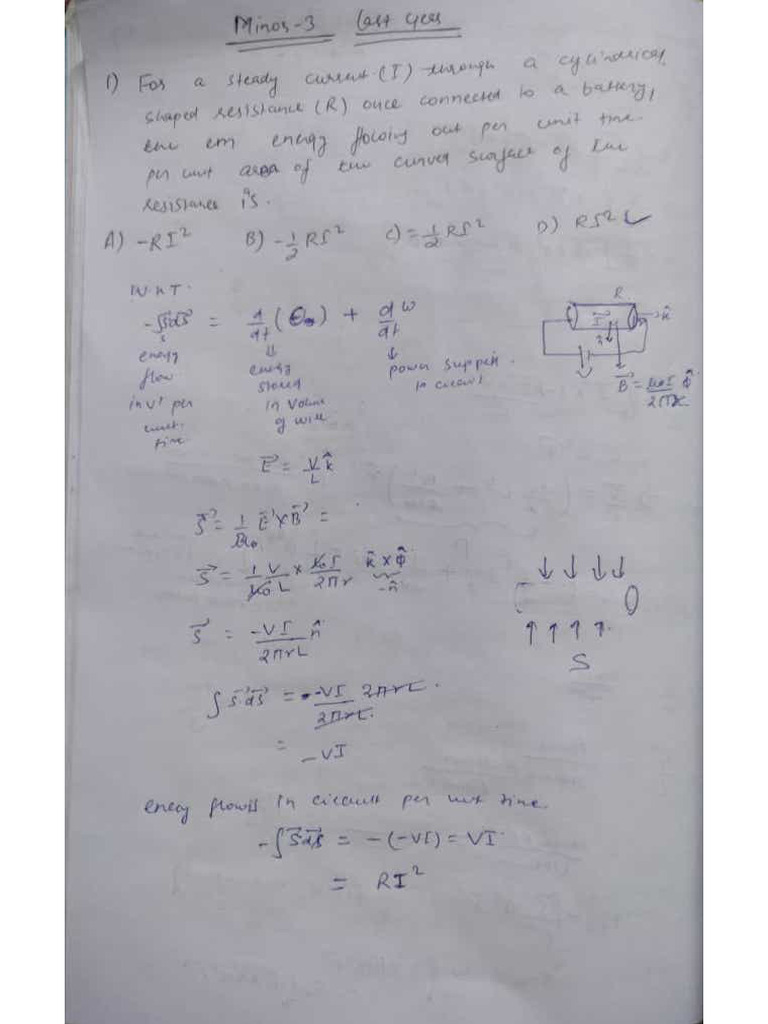 Minor-3 Last year
1) For a steady current (I) through a cylindrical
shaped resistance (R) once connected to a battery,
the em energy flowing out per unit time
per unit area of the curved surface of the
resistance is.
A) -RI² B) -1/2 RI² C) = 1/2 RI² D) RI² ✓
W.K.T.
-∫S⃗.ds⃗ = d/dt ( ) + dw/dt
energy flow in v' per unit time
energy stored in volume of wire
power supplied in circuit
R
I⃗
k̂
B⃗ = μ₀I/2πr φ̂
E⃗ = V/L k̂
S⃗ = 1/μ₀ E⃗ × B⃗ =
S⃗ = 1/μ₀ V/L × μ₀I/2πr k̂ × φ̂
-n̂
S⃗ = -VI/2πrL n̂
S
∫ S⃗.ds⃗ = -VI/2πrL 2πrL.
= -VI
energy flows in circuit per unit time
-∫S⃗.ds⃗ = -(-VI) = VI
= RI²